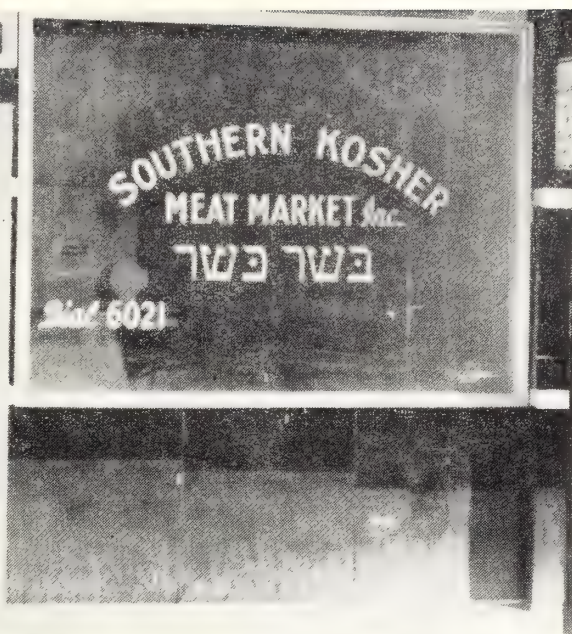 SOUTHERN KOSHER
MEAT MARKET Inc.
בשר כשר
Dial 6021